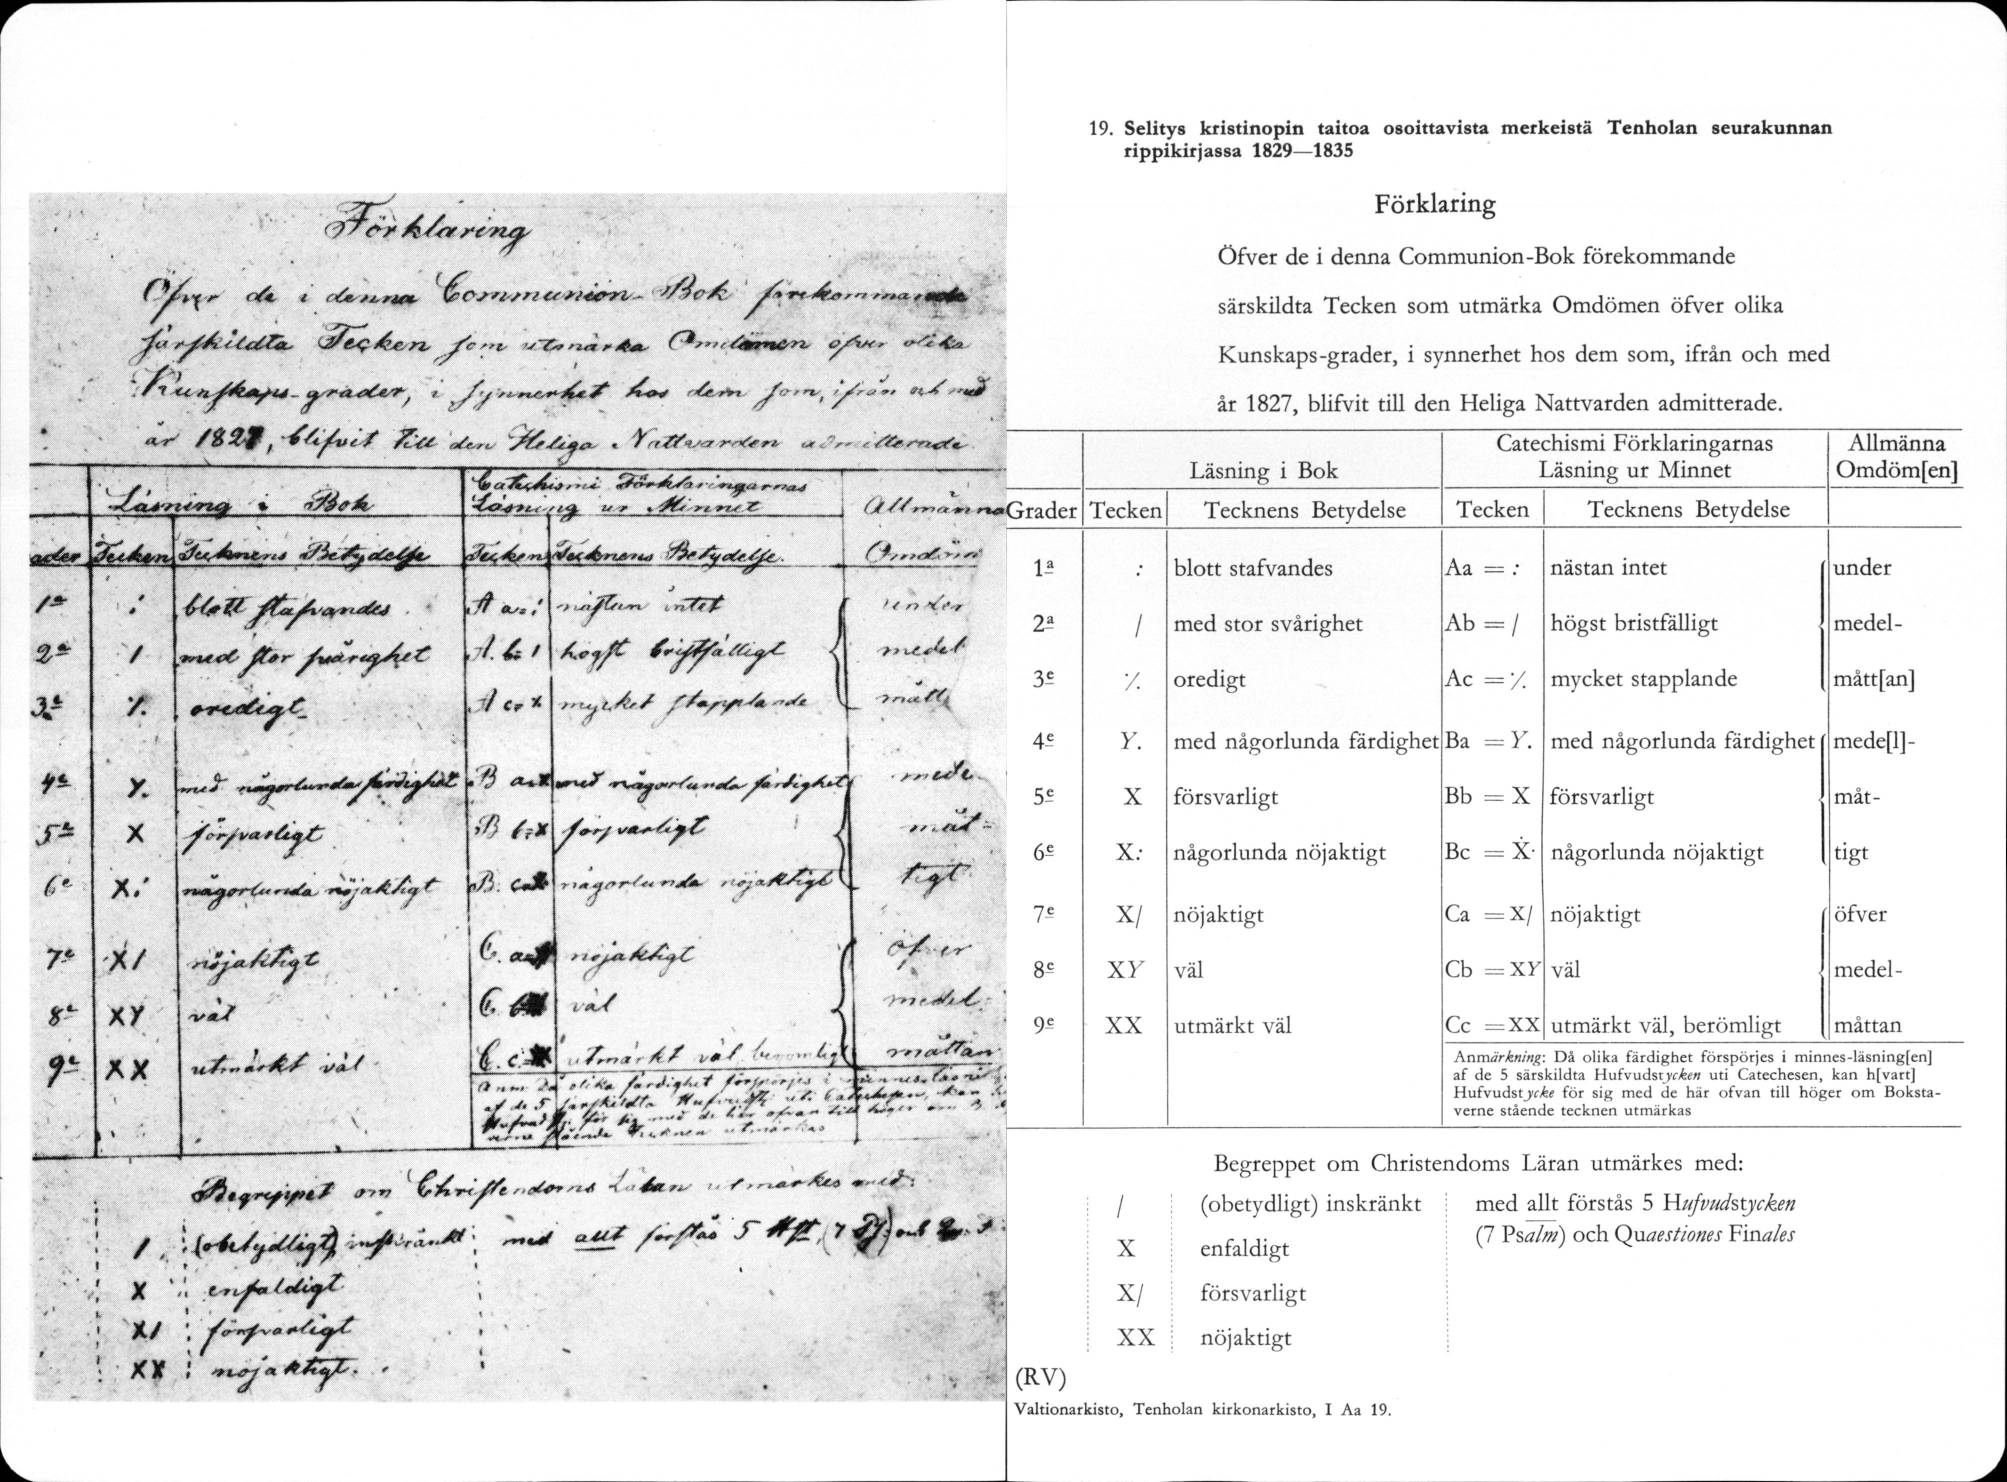 Förklaring
Öfver de i denna Communion-Bok förekommande
särskildta Tecken som utmärka Omdömen öfver olika
Kunskaps-grader, i synnerhet hos dem som, ifrån och med
år 1827, blifvit till den Heliga Nattvarden admitterade.
Läsning i Bok Catechismi Förklaringarnas Läsning ur Minnet Allmänna
ader Tecken Tecknens Betydelse Tecken Tecknens Betydelse. Omdöm
1a : blott stafvandes A a=: nästan intet under
2a / med stor svårighet A. b= / högst bristfälligt medel
3e ·/. oredigt A c= mycket stapplande mått
4e Y. med någorlunda färdighet B a= med någorlunda färdighet mede
5e X försvarligt B b=X försvarligt måt-
6e X: någorlunda nöjaktigt B. c= någorlunda nöjaktigt tigt
7e X/ nöjaktigt C. a= nöjaktigt öfver
8e XY väl C. b= väl medel-
9e XX utmärkt väl C. c= utmärkt väl, berömligt måttan
Anm: Då olika färdighet förspörjes i minnes-läsning
af de 5 särskildta Hufvudst: uti Catechesen, kan h
Hufvudst: för sig med de här ofvan till höger om B
verne stående Tecknen utmärkas
Begreppet om Christendoms Läran utmärkes med:
/ (obetydligt) inskränkt med allt förstås 5 Hst (7 Ps:) och
X enfaldigt
X/ försvarligt
XX nöjaktigt.
19. Selitys kristinopin taitoa osoittavista merkeistä Tenholan seurakunnan
rippikirjassa 1829—1835
Förklaring
Öfver de i denna Communion-Bok förekommande
särskildta Tecken som utmärka Omdömen öfver olika
Kunskaps-grader, i synnerhet hos dem som, ifrån och med
år 1827, blifvit till den Heliga Nattvarden admitterade.
Läsning i Bok Catechismi Förklaringarnas Läsning ur Minnet Allmänna Omdöm[en]
Grader Tecken Tecknens Betydelse Tecken Tecknens Betydelse
1a : blott stafvandes Aa = : nästan intet under
2a / med stor svårighet Ab = / högst bristfälligt medel-
3e ·/. oredigt Ac = ·/. mycket stapplande mått[an]
4e Y. med någorlunda färdighet Ba = Y. med någorlunda färdighet mede[l]-
5e X försvarligt Bb = X försvarligt måt-
6e X: någorlunda nöjaktigt Bc = Ẋ· någorlunda nöjaktigt tigt
7e X/ nöjaktigt Ca = X/ nöjaktigt öfver
8e XY väl Cb = XY väl medel-
9e XX utmärkt väl Cc = XX utmärkt väl, berömligt måttan
Anmärkning: Då olika färdighet förspörjes i minnes-läsning[en]
af de 5 särskildta Hufvudstycken uti Catechesen, kan h[vart]
Hufvudstycke för sig med de här ofvan till höger om Boksta-
verne stående tecknen utmärkas
Begreppet om Christendoms Läran utmärkes med:
/ (obetydligt) inskränkt med allt förstås 5 Hufvudstycken
(7 Psalm) och Quaestiones Finales
X enfaldigt
X/ försvarligt
XX nöjaktigt
(RV)
Valtionarkisto, Tenholan kirkonarkisto, I Aa 19.